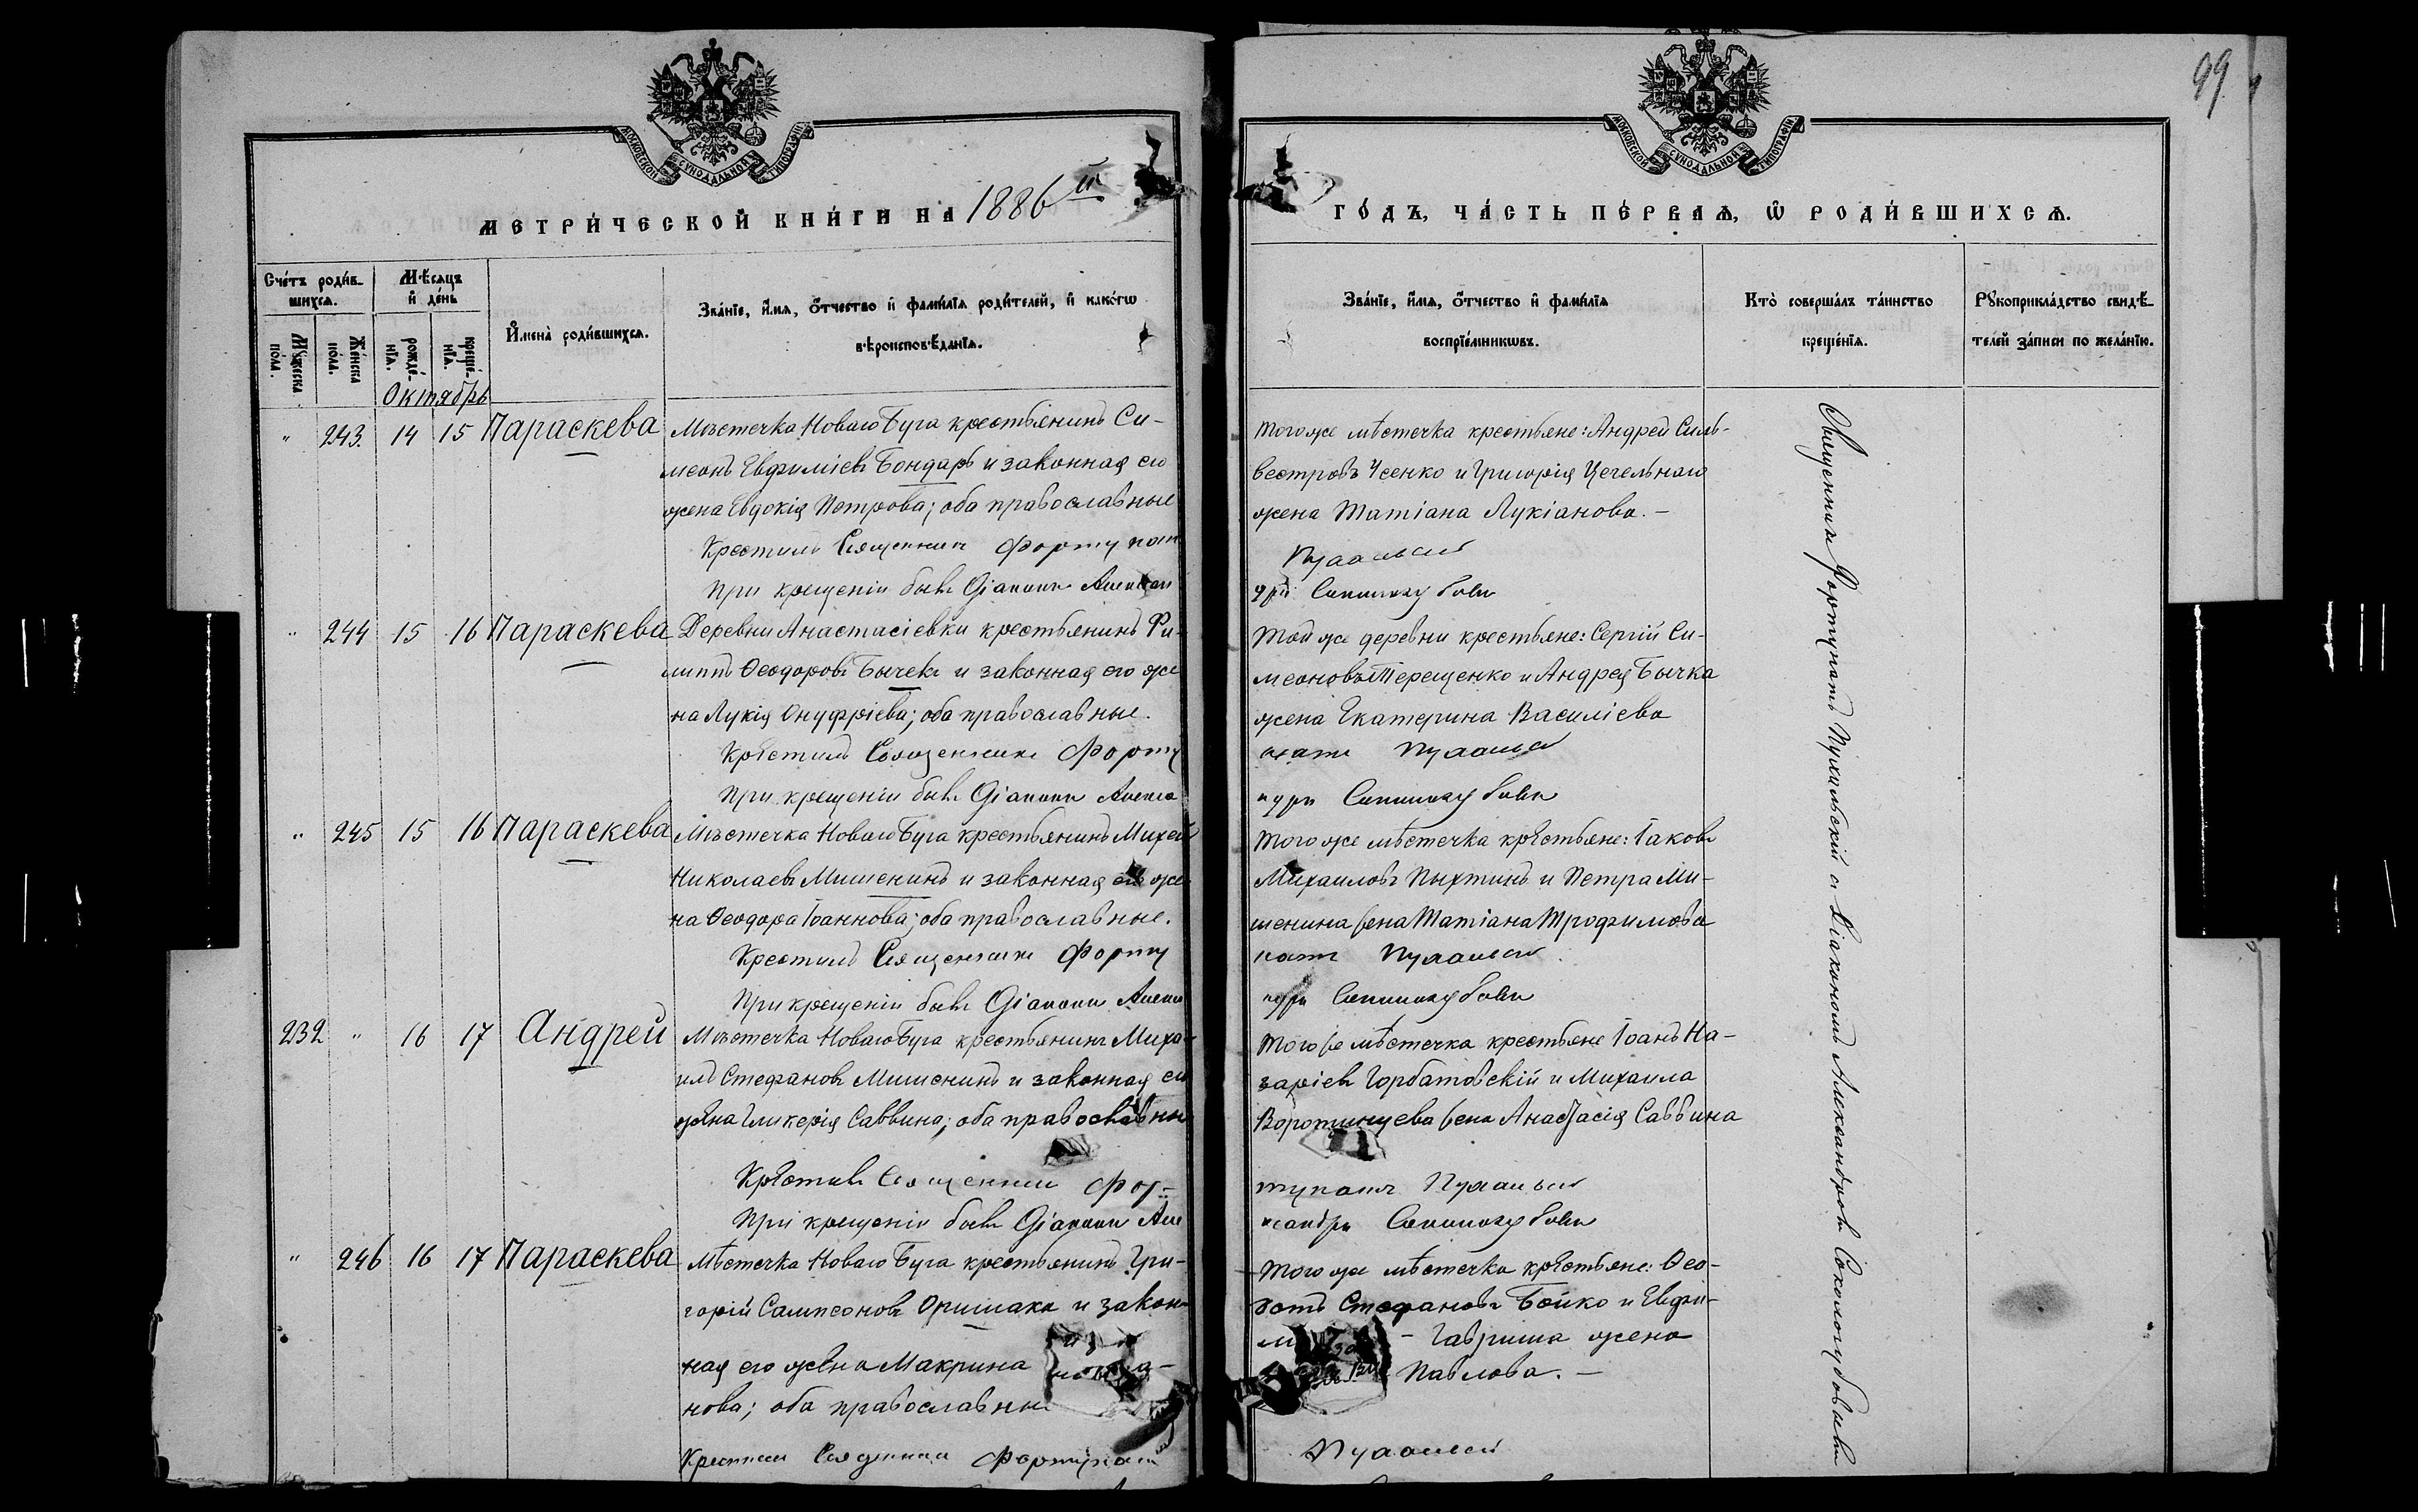 99
МОСКОВСКОЙ СѴНОДАЛЬНОЙ ТИПОГРАФІИ
МОСКОВСКОЙ СѴНОДАЛЬНОЙ ТИПОГРАФІИ
МЕТРИ́ЧЕСКОЙ КНИ́ГИ НА 1886й
ГО́ДЪ, ЧА́СТЬ ПЕ́РВАѦ, Ѡ РОДИ́ВШИХСѦ.
Сче́тъ роди́в-
шихсѧ.
Мꙋ́жеска
по́ла.
Же́нска
по́ла.
Мѣ́сѧцъ
и҆ де́нь
рожде́-
нїѧ.
креще́-
нїѧ.
И҆мена̀ роди́вшихсѧ.
Зва́нїе, и҆́мѧ, ѻ҆́тчество и҆ фами́лїѧ роди́телей, и҆ како́гѡ
вѣроисповѣ́данїѧ.
Зва́нїе, и҆́мѧ, ѻ҆́тчество и҆ фами́лїѧ
воспрїе́мникѡвъ.
Кто̀ соверша́лъ та́инство
креще́нїѧ.
Рꙋкоприкла́дство свидѣ́-
телей за́писи по жела́нїю.
Октябрь
" 243. 14 15 Параскева
Мѣстечка Новаго Буга крестьянинъ Си-
меонъ Евфиміевъ Бондарь и законная его
жена Евдокія Петрова; оба православные
Крестилъ Священникъ Фортунат
При крещеніи былъ Діаконъ Алексан
Того же мѣстечка крестьяне: Андрей Силь-
вестровъ Усенко и Григорія Цегельнаго
жена Татіана Лукіанова. -
Пухальскій
дръ Соколовъ
" 244 15 16 Параскева
Деревни Анастасіевки крестьянинъ Фи-
липпъ Ѳеодоровъ Бычекъ и законная его же
на Лукія Онуфріева; оба православные.
Крестилъ Священникъ Форту
При крещеніи былъ Діаконъ Алекса
Той же деревни крестьяне: Сергій Си-
меоновъ Терещенко и Андрея Бычка
жена Екатерина Василіева
натъ Пухальскій
" 245 15 16 Параскева
Мѣстечка Новаго Буга крестьянинъ Михей
Николаевъ Мишенинъ и законная его же-
на Ѳеодора Іоаннова; оба православные.
Крестилъ Священникъ Форту
При крещеніи былъ Діаконъ Алекса
Того же мѣстечка крестьяне: Іаковъ
Михаиловъ Пыхтинъ и Петра Ми-
шенина жена Татіана Трофимова
натъ Пухальскій
232 " 16 17 Андрей
Мѣстечка Новаго Буга крестьянинъ Миха-
илъ Стефановъ Мишенинъ и законная его
жена Гликерія Саввина; оба православны
Крестилъ Священникъ Фор-
При крещеніи былъ Діаконъ Але
Того же мѣстечка крестьяне Іоанъ На-
заріевъ Горбатовскій и Михаила
Воротынцева жена Анастасія Саввина
тунатъ Пухальскій
" 246 16 17 Параскева
Мѣстечка Новаго Буга крестьянинъ Гри-
горій Сампсоновъ Оришака и закон-
ная его жена Макрина
нова; оба православны
Крестилъ Священникъ Фортунатъ
Того же мѣстечка крестьяне: Ѳео-
Стефановъ Бойко и Евфи-
Гавриша жена
Павлова. -
Пухальскій
Священникъ Фортунатъ Пухальскій съ Діакономъ Александромъ